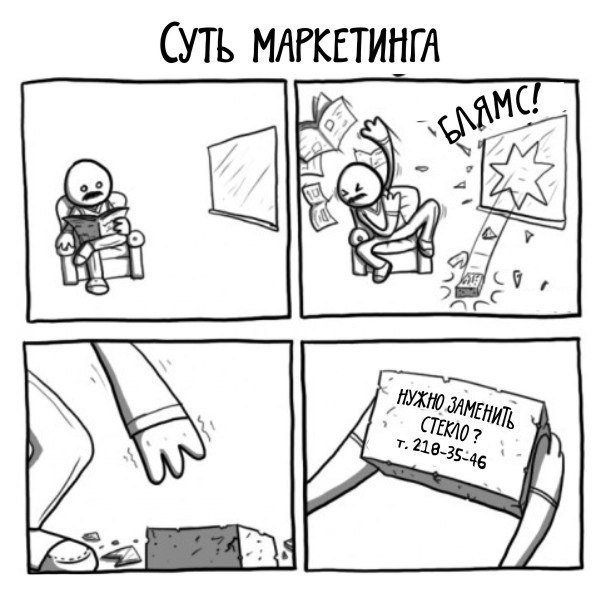 СУТЬ МАРКЕТИНГА
БЛЯМС!
НУЖНО ЗАМЕНИТЬ
СТЕКЛО?
т. 218-35-46